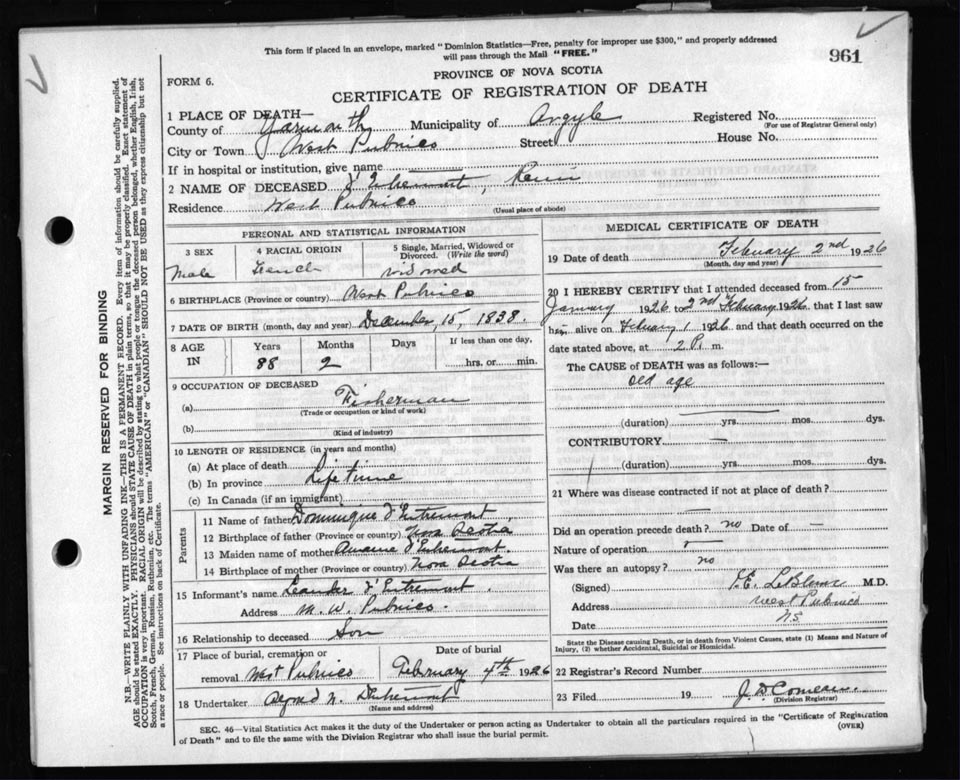 This form if placed in an envelope, marked "Dominion Statistics—Free, penalty for improper use $300," and properly addressed
will pass through the Mail "FREE."
961
PROVINCE OF NOVA SCOTIA
FORM 6.
CERTIFICATE OF REGISTRATION OF DEATH
1 PLACE OF DEATH—
County of Yarmouth Municipality of Argyle Registered No.
(For use of Registrar General only)
City or Town West Pubnico Street House No.
If in hospital or institution, give name
2 NAME OF DECEASED d'Entremont, Remi
Residence West Pubnico
(Usual place of abode)
PERSONAL AND STATISTICAL INFORMATION
3 SEX 4 RACIAL ORIGIN 5 Single, Married, Widowed or Divorced. (Write the word)
Male French widowed
6 BIRTHPLACE (Province or country) West Pubnico
7 DATE OF BIRTH (month, day and year) December, 15, 1838.
8 AGE IN Years Months Days If less than one day,
88 2 hrs. or min.
9 OCCUPATION OF DECEASED
(a) Fisherman
(Trade or occupation or kind of work)
(b)
(Kind of industry)
10 LENGTH OF RESIDENCE (in years and months)
(a) At place of death
(b) In province Life time
(c) In Canada (if an immigrant)
Parents
11 Name of father Dominique d'Entremont
12 Birthplace of father (Province or country) Nova Scotia
13 Maiden name of mother d'Entremont.
14 Birthplace of mother (Province or country) Nova Scotia
15 Informant's name Leander d'Entremont
Address M. W. Pubnico.
16 Relationship to deceased Son
17 Place of burial, cremation or removal Date of burial
West Pubnico February 4th 1926
18 Undertaker N. d'Entremont
(Name and address)
MEDICAL CERTIFICATE OF DEATH
19 Date of death February 2nd 1926
(Month, day and year)
20 I HEREBY CERTIFY that I attended deceased from 15
January 1926 to 2nd February 1926 that I last saw
him alive on February 1 1926 and that death occurred on the
date stated above, at 2 P. m.
The CAUSE OF DEATH was as follows:—
old age
(duration) yrs. mos. dys.
CONTRIBUTORY —
(duration) yrs. mos. dys.
21 Where was disease contracted if not at place of death?
Did an operation precede death? no Date of —
Nature of operation
Was there an autopsy? no
(Signed) E. LeBlanc M.D.
Address West Pubnico
Date N.S.
State the Disease causing Death, or in death from Violent Causes, state (1) Means and Nature of
Injury, (2) whether Accidental, Suicidal or Homicidal.
22 Registrar's Record Number
23 Filed 19 J. D. Comeau
(Division Registrar)
SEC. 46—Vital Statistics Act makes it the duty of the Undertaker or person acting as Undertaker to obtain all the particulars required in the "Certificate of Registration
of Death" and to file the same with the Division Registrar who shall issue the burial permit.
(OVER)
MARGIN RESERVED FOR BINDING
N.B.—WRITE PLAINLY WITH UNFADING INK—THIS IS A PERMANENT RECORD. Every item of information should be carefully supplied.
AGE should be stated EXACTLY. PHYSICIANS should STATE CAUSE OF DEATH in plain terms, so that it may be properly classified. Exact statement of
OCCUPATION is very important. RACIAL ORIGIN will be described by stating to what people or tongue the deceased person belonged, whether English, Irish,
Scotch, French, German, Russian, Ruthenian, etc. The terms "AMERICAN" or "CANADIAN" SHOULD NOT BE USED as they express citizenship but not
a race or people. See instructions on back of Certificate.